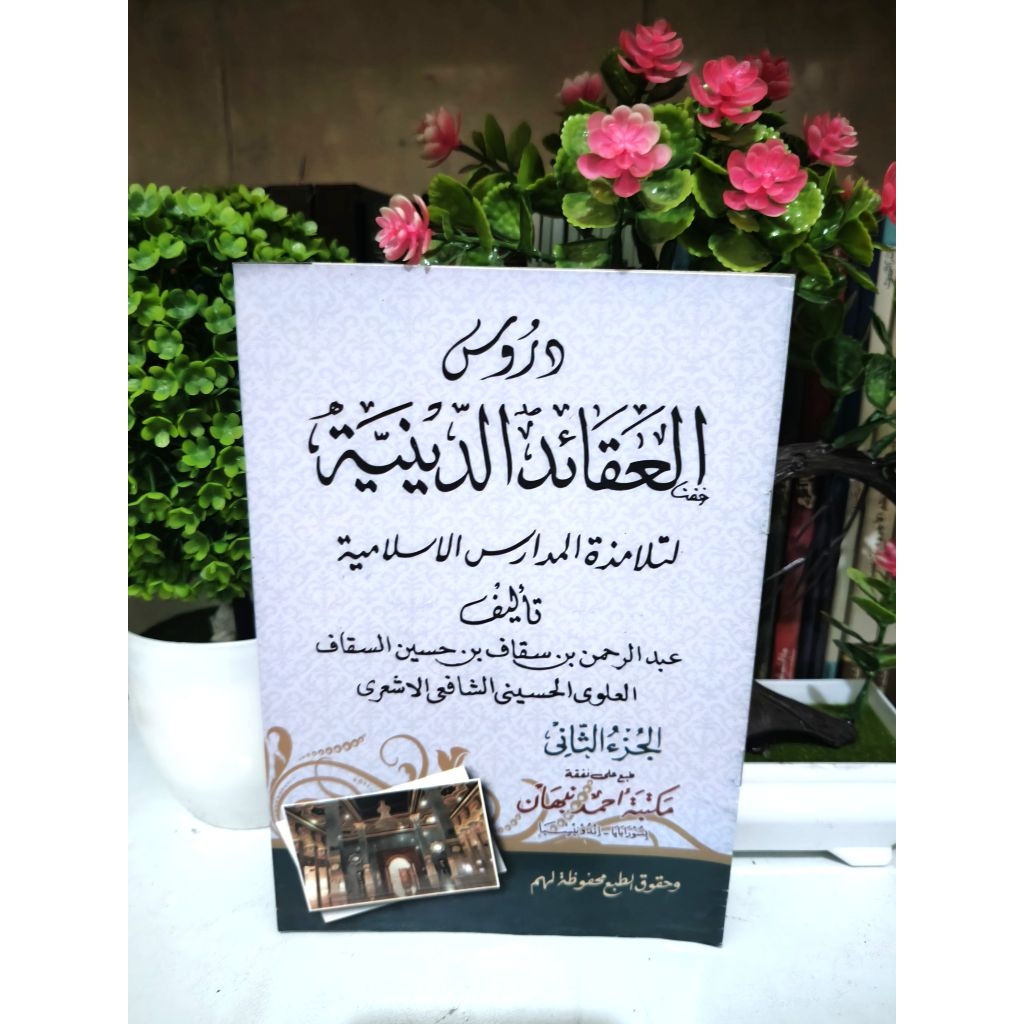 دروس
العقائد الدينية
لتلامذة المدارس الاسلامية
تأليف
عبد الرحمن بن سقاف بن حسين السقاف
العلوى الحسينى الشافعى الاشعرى
الجزء الثانى
طبع على نفقة
مكتبة احمد نبهان
وحقوق الطبع محفوظة لهم